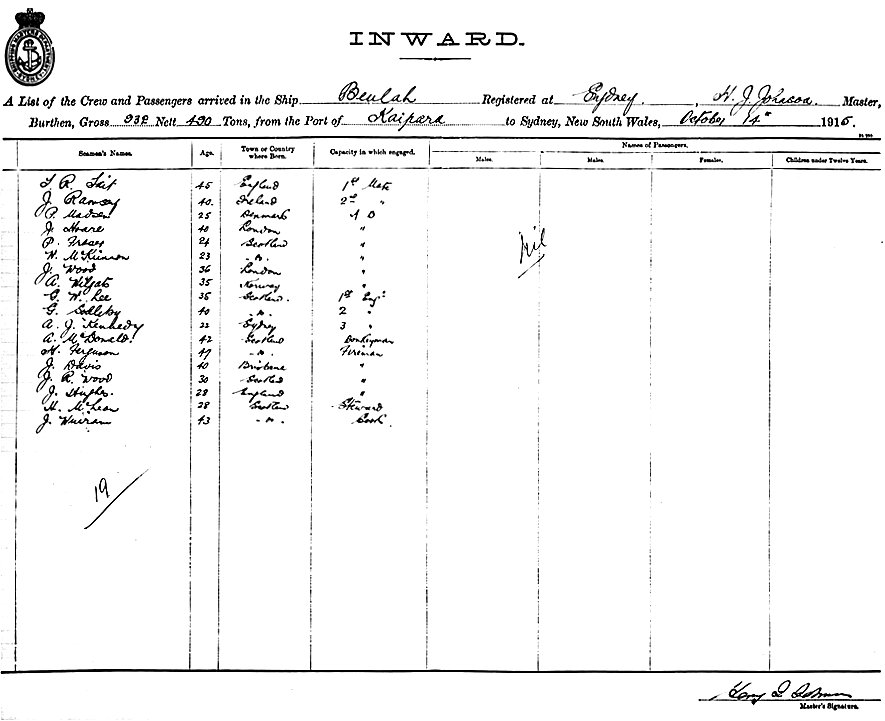 INWARD.
A List of the Crew and Passengers arrived in the Ship Beulah Registered at Sydney, H. J. Johnson Master,
Burthen, Gross 932 Nett 490 Tons, from the Port of Kaipara to Sydney, New South Wales, October 14th 1915.
Names of Passengers.
Seamen's Names. Age. Town or Country where Born. Capacity in which engaged. Males. Males. Females. Children under Twelve Years.
T. R. Tait 45 England 1st Mate
J. Ramsey 40 Ireland 2nd "
P. Madsen 25 Denmark A B
J. Hoare 40 London "
P. Fraser 24 Scotland "
W. McKinnon 23 - " - "
J. Wood 36 London "
A. 35 Norway "
G. W. Lee 35 Scotland. 1st Engr
G. 40 - " - 2 "
A. J. Kennedy 22 Sydney 3 "
A. McDonald. 42 Scotland Donkeyman
H. Ferguson 49 - " - Fireman
J. Davis 40 Brisbane "
J. R. Wood 30 Scotland "
J. Hughes. 28 England "
H. McLean 28 Scotland Steward
J. 43 - " - Cook.
Nil
19
Master's Signature.